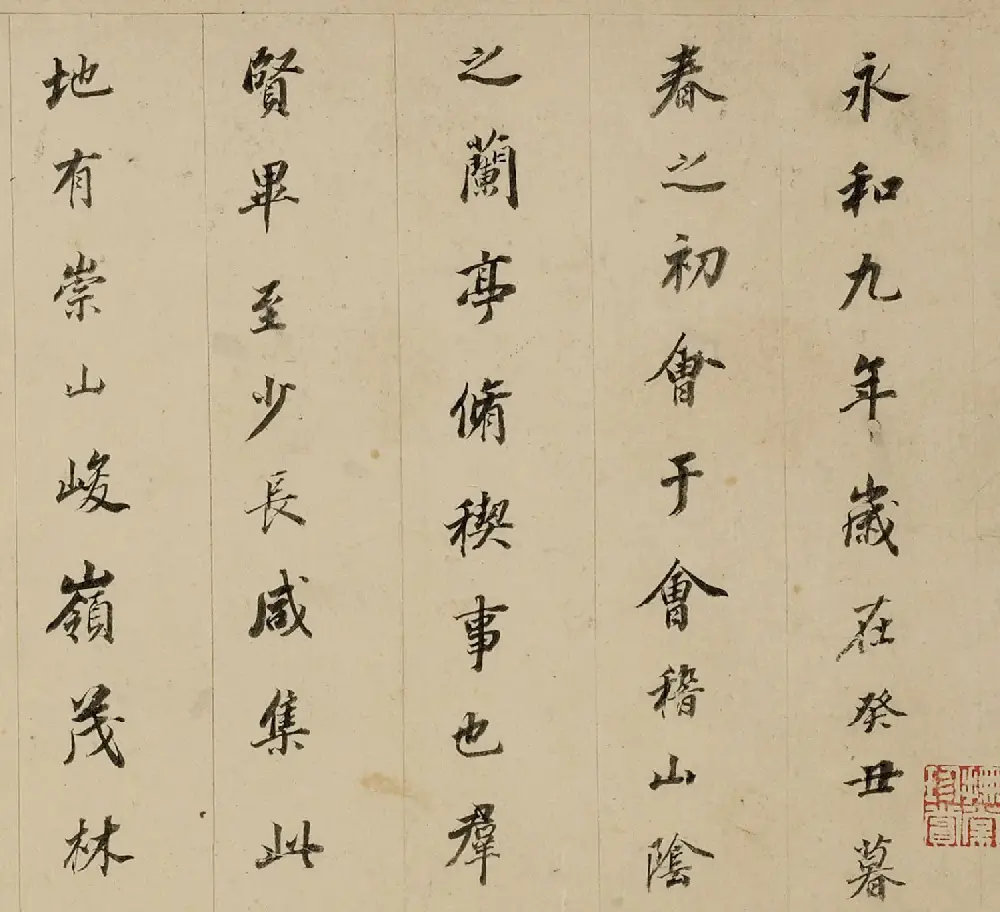 永和九年歲在癸丑暮
春之初會于會稽山陰
之蘭亭脩稧事也羣
賢畢至少長咸集此
地有崇山峻嶺茂林